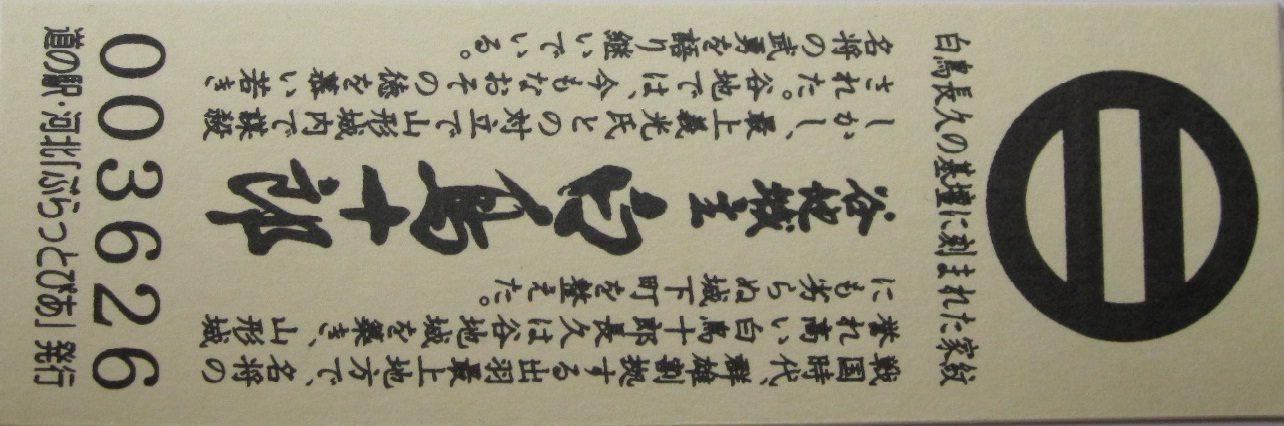 白鳥長久の墓壇に刻まれた家紋
戦国時代、群雄割拠する出羽最上地方で、名将の
誉れ高い白鳥十郎長久は谷地城を築き、山形城
にも劣らぬ城下町を整えた。
谷地城主 白鳥十郎
しかし、最上義光氏との対立で山形城内で謀殺
された。谷地では、今もなおその徳を慕い若き
名将の武勇を語り継いでいる。
003626
道の駅・河北「ぶらっとぴあ」発行